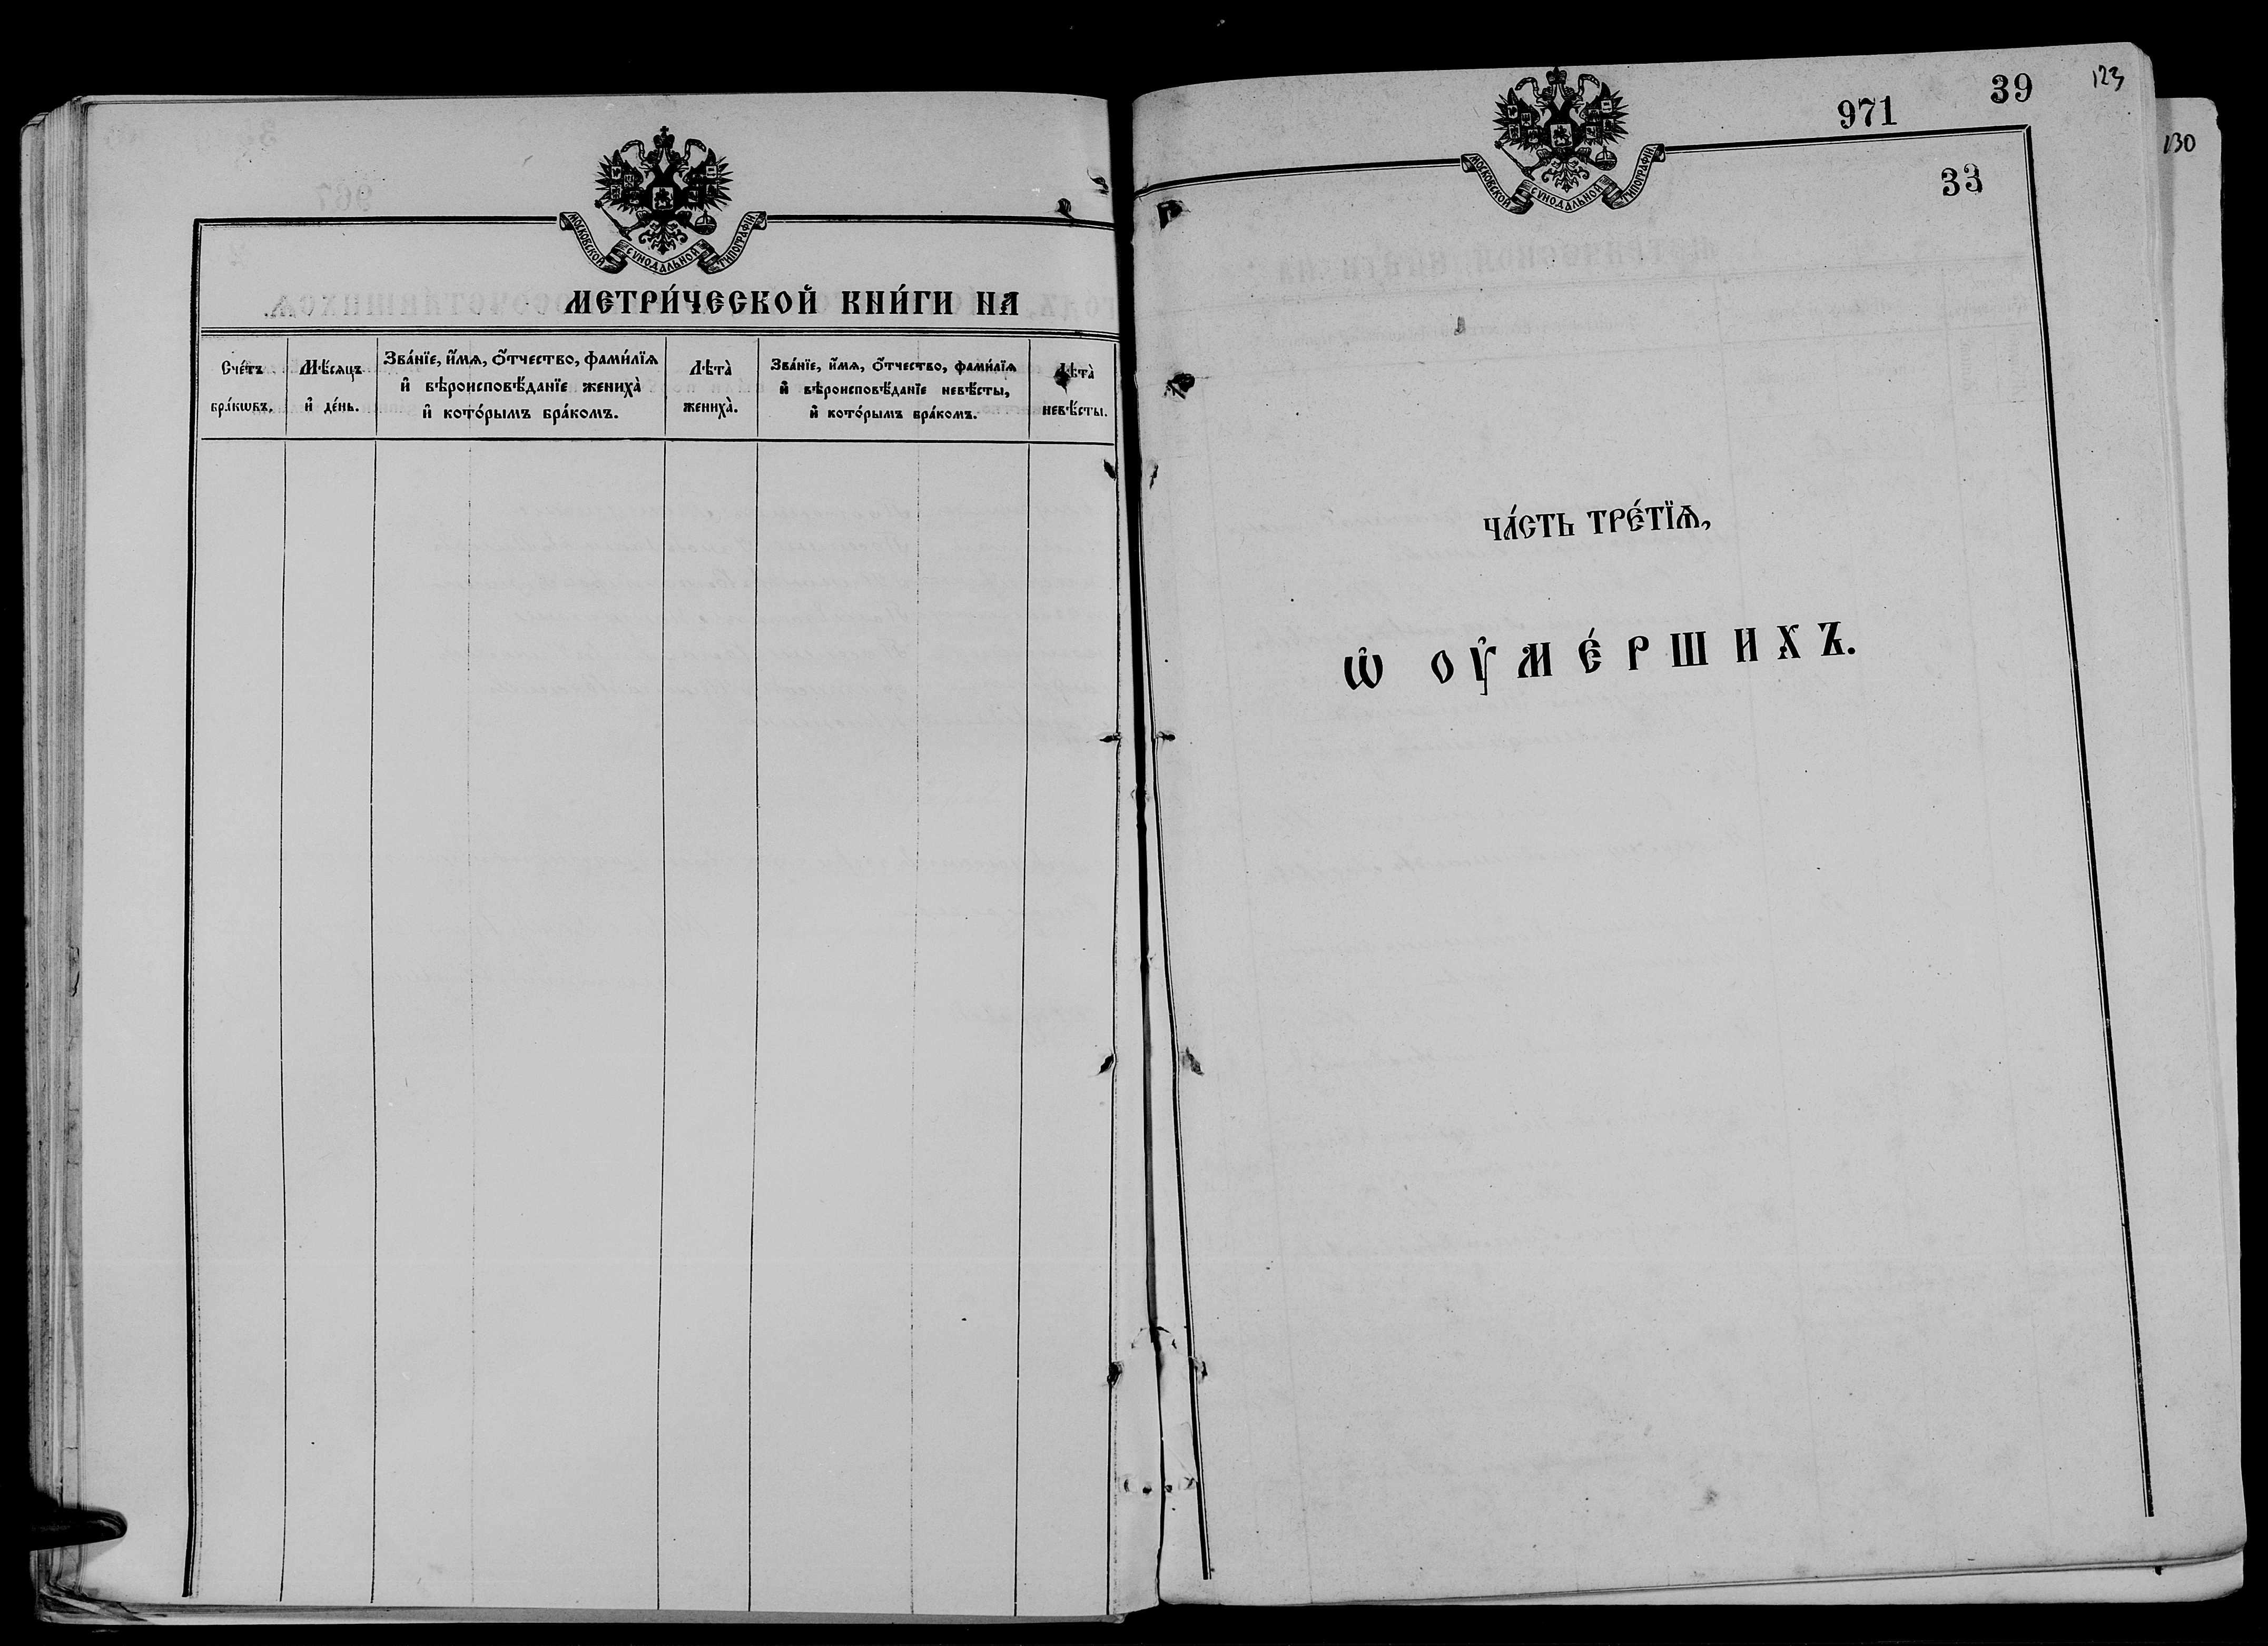 МОСКОВСКОЙ СѴНОДАЛЬНОЙ ТИПОГРАФІИ
МЕТРИ́ЧЕСКОЙ КНИ́ГИ НА
Сче́тъ
бра́кѡвъ.
Мѣ́сяцъ
и҆ де́нь.
Зва́нїе, и҆́мѧ, ѻ҆́тчество, фами́лїѧ
и҆ вѣроисповѣ́данїе жениха̀
и҆ кото́рымъ бра́комъ.
Лѣта̀
жениха̀.
Зва́нїе, и҆́мѧ, ѻ҆́тчество, фами́лїѧ
и҆ вѣроисповѣ́данїе невѣ́сты,
и҆ кото́рымъ бра́комъ.
Лѣта̀
невѣ́сты.
МОСКОВСКОЙ СѴНОДАЛЬНОЙ ТИПОГРАФІИ
971
39
123
130
33
ЧА́СТЬ ТРЕ́ТЇѦ,
Ѡ҆ ОУ҆МЕ́РШИХЪ.